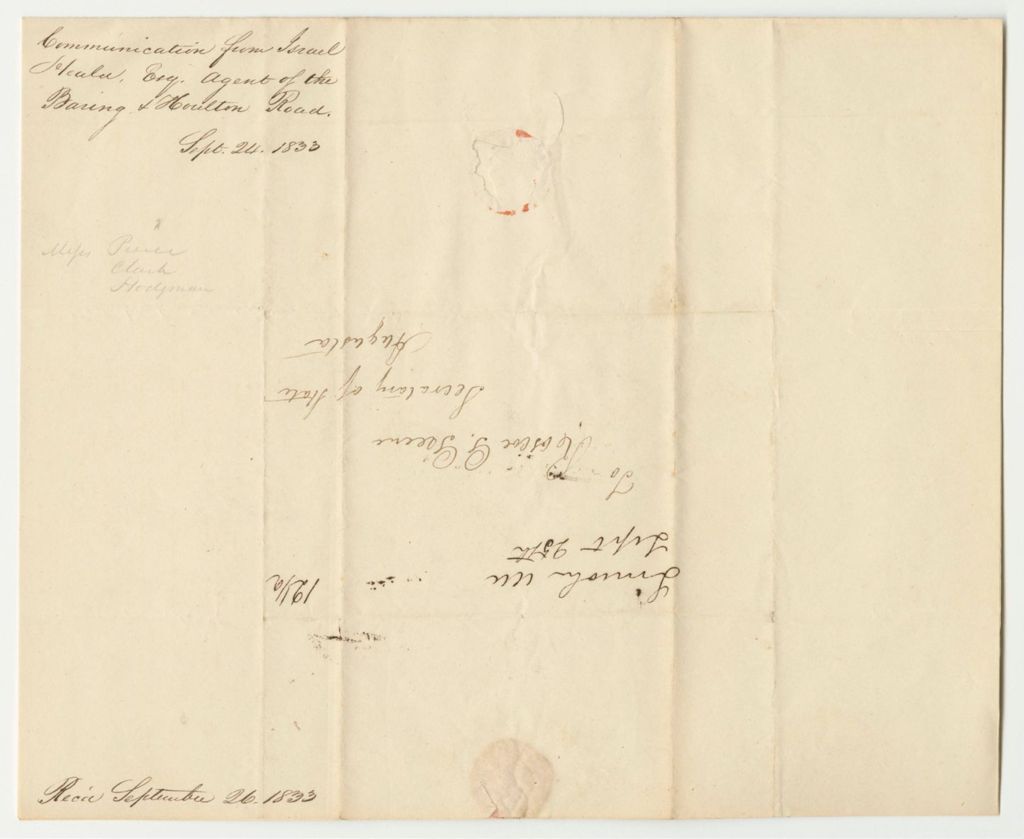 Communication from Israel
Heald, Esq. Agent of the
Baring & Houlton Road.
Sept. 24. 1833
Mess Pierce
Clark
Hodgman
Lincoln Me
Sept 25th
12½
To
Roscoe G. Greene
Secretary of State
Augusta
Recd September 26. 1833